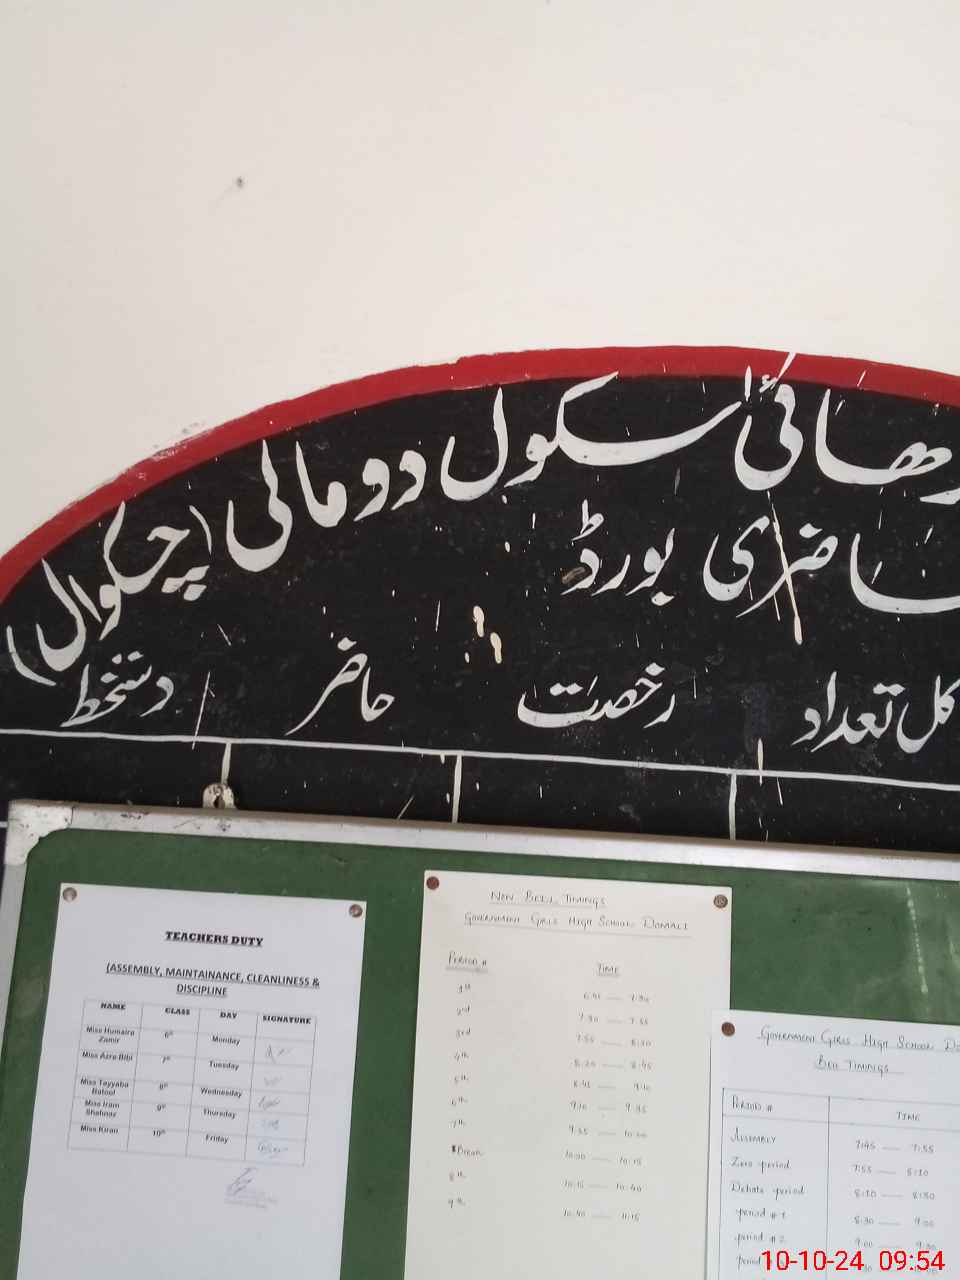 ھائی سکول دومالی (چکوال)
حاضری بورڈ
کل تعداد رخصت حاضر دستخط
TEACHERS DUTY
(ASSEMBLY, MAINTAINANCE, CLEANLINESS &
DISCIPLINE
NAME CLASS DAY SIGNATURE
Miss Humaira Zamir 6th Monday
Miss Azra Bibi 7th Tuesday
Miss Tayyaba Batool 8th Wednesday
Miss Iram Shahnaz 9th Thursday
Miss Kiran 10th Friday
New Bell Timings
Government Girls High School Domali
Period # Time
1st 6:45 — 7:30
2nd 7:30 — 7:55
3rd 7:55 — 8:20
4th 8:20 — 8:45
5th 8:45 — 9:10
6th 9:10 — 9:35
7th 9:35 — 10:00
Break 10:00 — 10:15
8th 10:15 — 10:40
9th 10:40 — 11:15
Government Girls High School
Bell Timings
Period # Time
Assembly 7:45 — 7:55
Zero period 7:55 — 8:10
Debate period 8:10 — 8:30
period # 1 8:30 — 9:00
period # 2 9:00 — 9:30
period
10-10-24 09:54